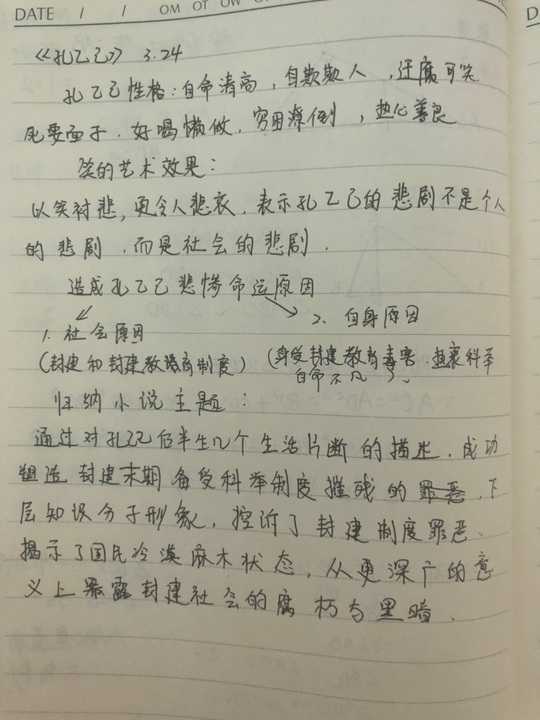 DATE / / OM OT OW
D
《孔乙己》 3.24
孔乙己性格:自命清高,自欺欺人,迂腐可笑
死要面子.好喝懒做,穷困潦倒,热心善良
笑的艺术效果:
以笑衬悲,更令人悲哀.表示孔乙己的悲剧不是个人
的悲剧.而是社会的悲剧.
造成孔乙己悲惨命运原因
1.社会原因 2.自身原因
(封建和封建教育制度) (身受封建教育毒害.热衷科举
自命不凡)
归纳小说主题:
通过对孔乙己后半生几个生活片断的描述.成功
塑造封建末期备受科举制度摧残的 下
层知识分子形象,控诉了封建制度罪恶.
揭示了国民冷漠麻木状态,从更深广的意
义上暴露封建社会的腐朽与黑暗.